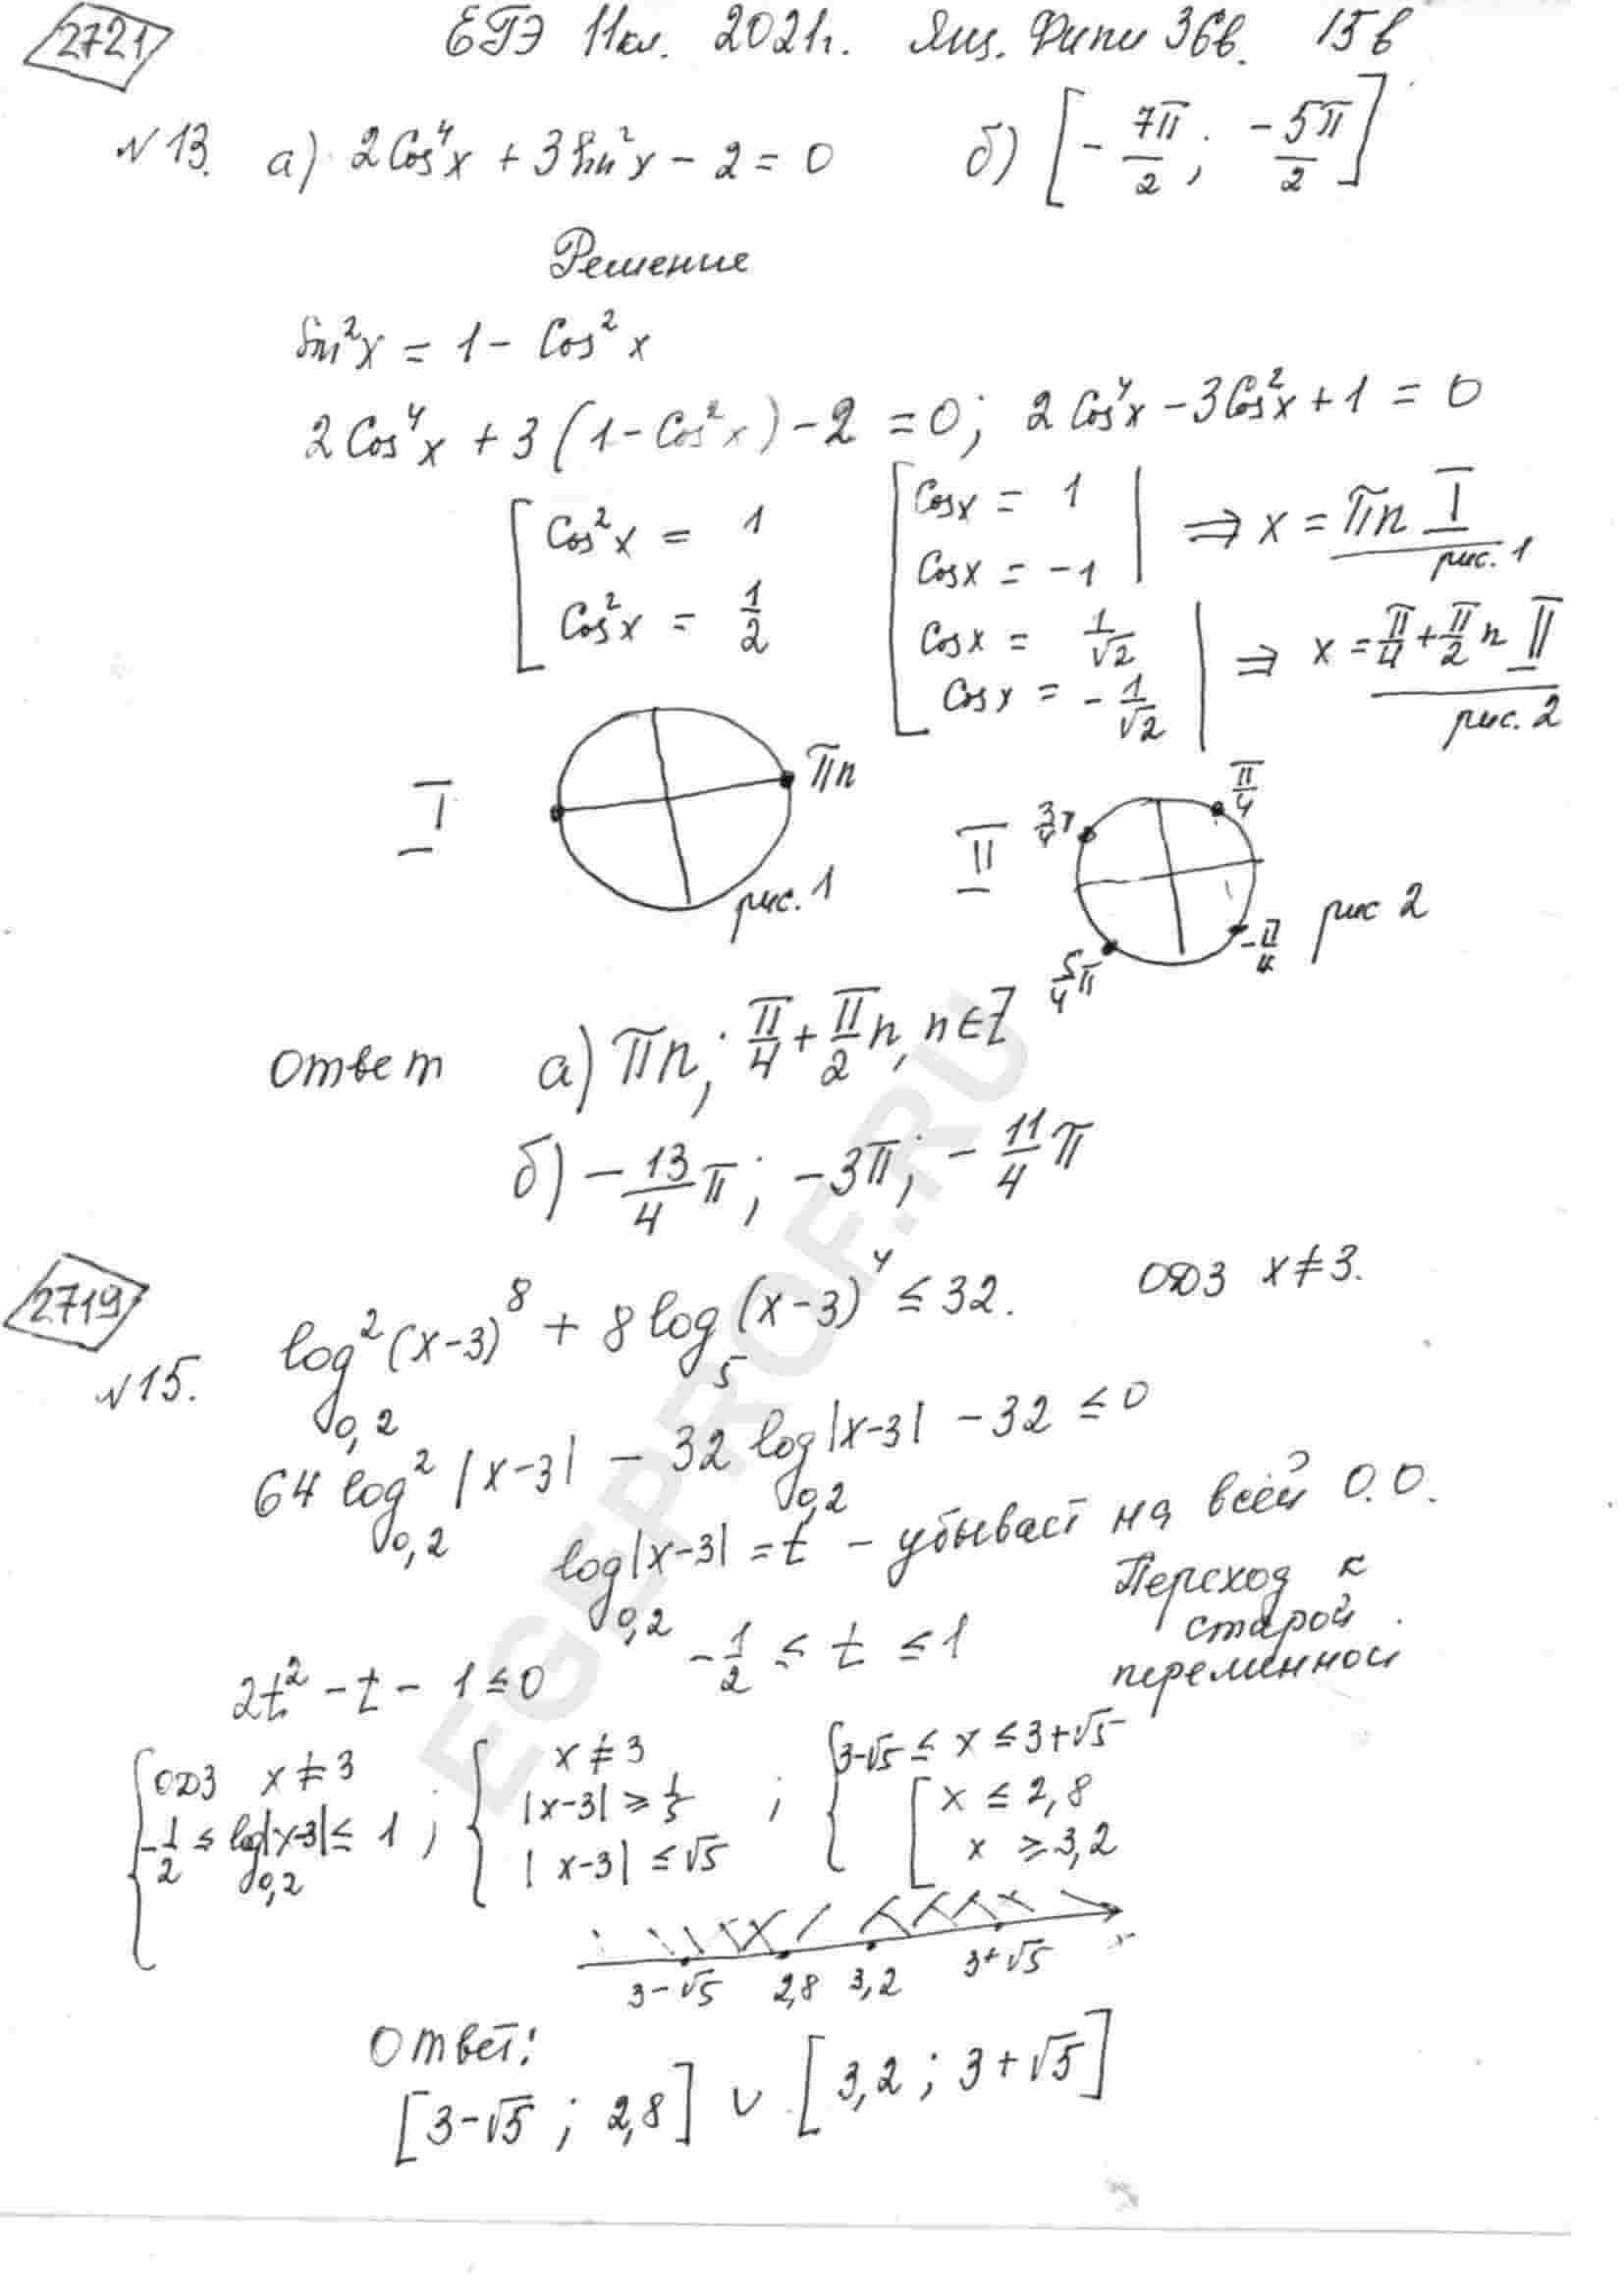 2721 ЕГЭ 11кл. 2021г. Ящ. Фипи 36в. 15в
№13. а) 2Cos⁴x + 3Sin²x - 2 = 0 б) [-7π/2; -5π/2]
Решение
Sin²x = 1 - Cos²x
2Cos⁴x + 3(1-Cos²x) - 2 = 0; 2Cos⁴x - 3Cos²x + 1 = 0
[Cos²x = 1 [Cosx = 1 | ⇒ x = πn I
Cosx = -1 рис. 1
Cos²x = 1/2 Cosx = 1/√2 | ⇒ x = π/4 + π/2 n II
Cosx = -1/√2 рис. 2
I πn рис. 1
II 3/4π π/4 5/4π -π/4 рис 2
Ответ а) πn; π/4 + π/2 n, n∈Z
б) -13/4 π; -3π; -11/4 π
2719 №15. log²₀,₂(x-3)⁸ + 8log₅(x-3)⁴ ≤ 32. ОДЗ x≠3.
64 log²₀,₂|x-3| - 32 log₀,₂|x-3| - 32 ≤ 0
log₀,₂|x-3| = t - убывает на всей О.О.
2t² - t - 1 ≤ 0 -1/2 ≤ t ≤ 1 Переход к
старой
переменной
{ОДЗ x≠3 {x≠3 {3-√5 ≤ x ≤ 3+√5
-1/2 ≤ log₀,₂|x-3| ≤ 1; |x-3| ≥ 1/5; [x ≤ 2,8
|x-3| ≤ √5 x ≥ 3,2
3-√5 2,8 3,2 3+√5 x
Ответ:
[3-√5; 2,8] ∪ [3,2; 3+√5]
EGEPROF.RU